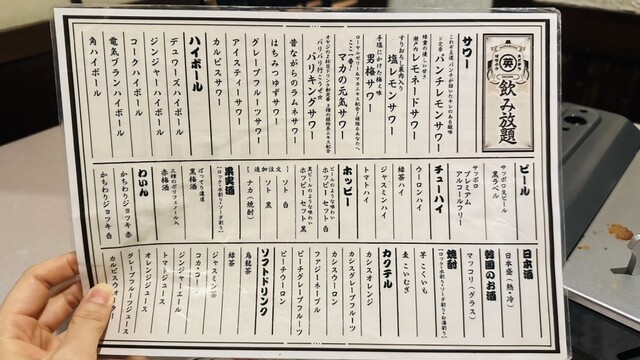 英
飲み放題
サワー
これぞ王道 パンチが効いたキレのある酸味
パンチレモンサワー
蜂蜜の優しい甘さ
瀬戸内レモネードサワー
すりおろし果肉入り
塩レモンサワー
手塩にかけた梅と味
男梅サワー
ここ一番！
マカの元気サワー
バリバリ行こうぜ!!
バリキングサワー
昔ながらのラムネサワー
はちみつゆずサワー
グレープフルーツサワー
アイスティーサワー
カルピスサワー
ハイボール
デュワーズハイボール
ジンジャーハイボール
コークハイボール
電気ブランハイボール
角ハイボール
ビール
サッポロ生ビール
黒ラベル
サッポロ
プレミアム
アルコールフリー
チューハイ
ウーロンハイ
緑茶ハイ
ジャスミンハイ
トマトハイ
ホッピー
ビールのような味わい
ホッピーセット 白
黒ビールのような味わい
ホッピーセット 黒
【追加注文】
ソト 白
ソト 黒
ナカ（焼酎）
果実酒
【ロック・水割り・ソーダ割り】
ぽってり濃厚
黒梅酒
三種のポリフェノール入
赤梅酒
わいん
かちわりジョッキ 赤
かちわりジョッキ 白
日本酒
日本盛（熱・冷）
韓国のお酒
マッコリ（グラス）
焼酎
【ロック・水割り・ソーダ割り・お湯割り】
芋 こくいも
麦 こいむぎ
カクテル
カシスオレンジ
カシスグレープフルーツ
カシスウーロン
ファジーネーブル
ピーチグレープフルーツ
ピーチウーロン
ソフトドリンク
烏龍茶
緑茶
ジャスミン茶
コカ・コーラ
ジンジャーエール
トマトジュース
オレンジジュース
グレープフルーツジュース
カルピスウォーター